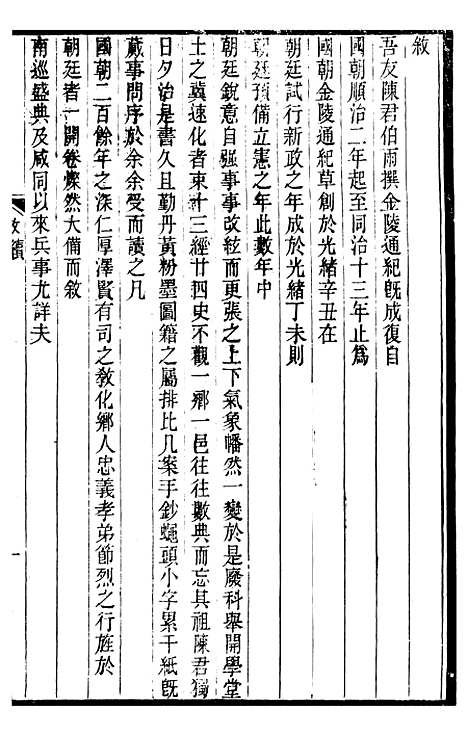 敘
吾友陳君伯雨撰金陵通紀旣成復自
國朝順治二年起至同治十三年止爲
國朝金陵通紀草創於光緒辛丑在
朝廷試行新政之年成於光緒丁未則
朝廷預備立憲之年此數年中
朝廷銳意自强事事改絃而更張之上下氣象幡然一變於是廢科舉開學堂
士之冀速化者束十三經廿四史不觀一鄉一邑往往數典而忘其祖陳君獨
日夕治是書久且勤丹黃粉墨圖籍之屬排比几案手鈔蠅頭小字累千紙旣
蕆事問序於余余受而讀之凡
國朝二百餘年之深仁厚澤賢有司之敎化鄉人忠義孝弟節烈之行旌於
朝廷者一開卷燦然大備而敘
南巡盛典及咸同以來兵事尤詳夫
一